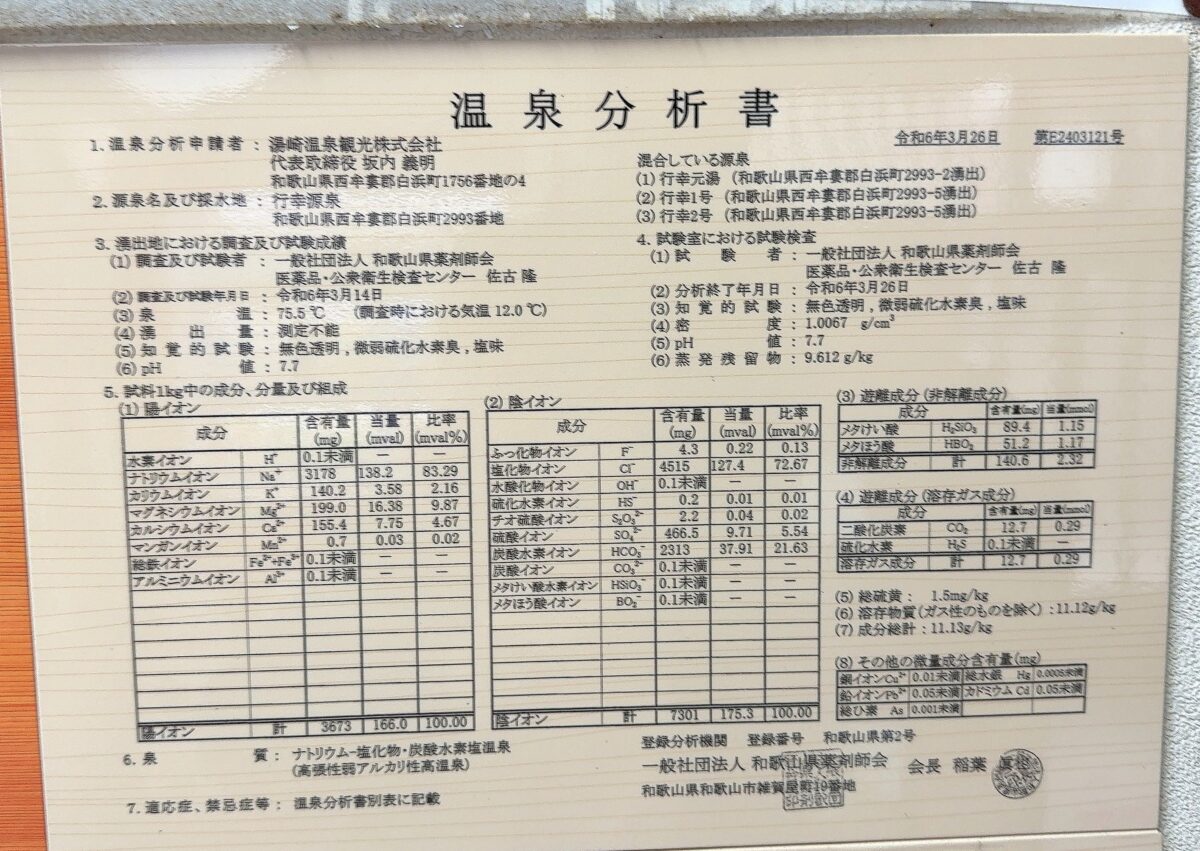 温泉分析書
令和6年3月26日 第E2403121号
1. 温泉分析申請者 : 湯崎温泉観光株式会社
代表取締役 坂内 義明
和歌山県西牟婁郡白浜町1756番地の4
2. 源泉名及び採水地 : 行幸源泉
和歌山県西牟婁郡白浜町2993番地
混合している源泉
(1) 行幸元湯 (和歌山県西牟婁郡白浜町2993-2湧出)
(2) 行幸1号 (和歌山県西牟婁郡白浜町2993-5湧出)
(3) 行幸2号 (和歌山県西牟婁郡白浜町2993-5湧出)
3. 湧出地における調査及び試験成績
(1) 調査及び試験者 : 一般社団法人 和歌山県薬剤師会
医薬品・公衆衛生検査センター 佐古 隆
(2) 調査及び試験年月日 : 令和6年3月14日
(3) 泉温 : 75.5 ℃ (調査時における気温 12.0 ℃)
(4) 湧出量 : 測定不能
(5) 知覚的試験 : 無色透明 , 微弱硫化水素臭 , 塩味
(6) pH値 : 7.7
4. 試験室における試験検査
(1) 試験者 : 一般社団法人 和歌山県薬剤師会
医薬品・公衆衛生検査センター 佐古 隆
(2) 分析終了年月日 : 令和6年3月26日
(3) 知覚的試験 : 無色透明 , 微弱硫化水素臭 , 塩味
(4) 密度 : 1.0067 g/cm³
(5) pH値 : 7.7
(6) 蒸発残留物 : 9.612 g/kg
5. 試料1kg中の成分、分量及び組成
(1) 陽イオン
成分 含有量(mg) 当量(mval) 比率(mval%)
水素イオン H⁺ 0.1未満 — —
ナトリウムイオン Na⁺ 3178 138.2 83.29
カリウムイオン K⁺ 140.2 3.58 2.16
マグネシウムイオン Mg²⁺ 199.0 16.38 9.87
カルシウムイオン Ca²⁺ 155.4 7.75 4.67
マンガンイオン Mn²⁺ 0.7 0.03 0.02
総鉄イオン Fe²⁺+Fe³⁺ 0.1未満 — —
アルミニウムイオン Al³⁺ 0.1未満 — —
陽イオン 計 3673 166.0 100.00
(2) 陰イオン
成分 含有量(mg) 当量(mval) 比率(mval%)
ふっ化物イオン F⁻ 4.3 0.22 0.13
塩化物イオン Cl⁻ 4515 127.4 72.67
水酸化物イオン OH⁻ 0.1未満 — —
硫化水素イオン HS⁻ 0.2 0.01 0.01
チオ硫酸イオン S₂O₃²⁻ 2.2 0.04 0.02
硫酸イオン SO₄²⁻ 466.5 9.71 5.54
炭酸水素イオン HCO₃⁻ 2313 37.91 21.63
炭酸イオン CO₃²⁻ 0.1未満 — —
メタけい酸水素イオン HSiO₃⁻ 0.1未満 — —
メタほう酸イオン BO₂⁻ 0.1未満 — —
陰イオン 計 7301 175.3 100.00
(3) 遊離成分 (非解離成分)
成分 含有量(mg) 当量(mmol)
メタけい酸 H₂SiO₃ 89.4 1.15
メタほう酸 HBO₂ 51.2 1.17
非解離成分 計 140.6 2.32
(4) 遊離成分 (溶存ガス成分)
成分 含有量(mg) 当量(mmol)
二酸化炭素 CO₂ 12.7 0.29
硫化水素 H₂S 0.1未満 —
溶存ガス成分 計 12.7 0.29
(5) 総硫黄 : 1.5mg/kg
(6) 溶存物質 (ガス性のものを除く) : 11.12g/kg
(7) 成分総計 : 11.13g/kg
(8) その他の微量成分含有量(mg)
銅イオンCu²⁺ 0.01未満 総水銀 Hg 0.0005未満
鉛イオンPb²⁺ 0.05未満 カドミウム Cd 0.05未満
総ひ素 As 0.001未満
6. 泉質 : ナトリウム-塩化物・炭酸水素塩温泉
(高張性弱アルカリ性高温泉)
7. 適応症、禁忌症等 : 温泉分析書別表に記載
登録分析機関 登録番号 和歌山県第2号
一般社団法人 和歌山県薬剤師会 会長 稲葉
和歌山県和歌山市雑賀屋町19番地